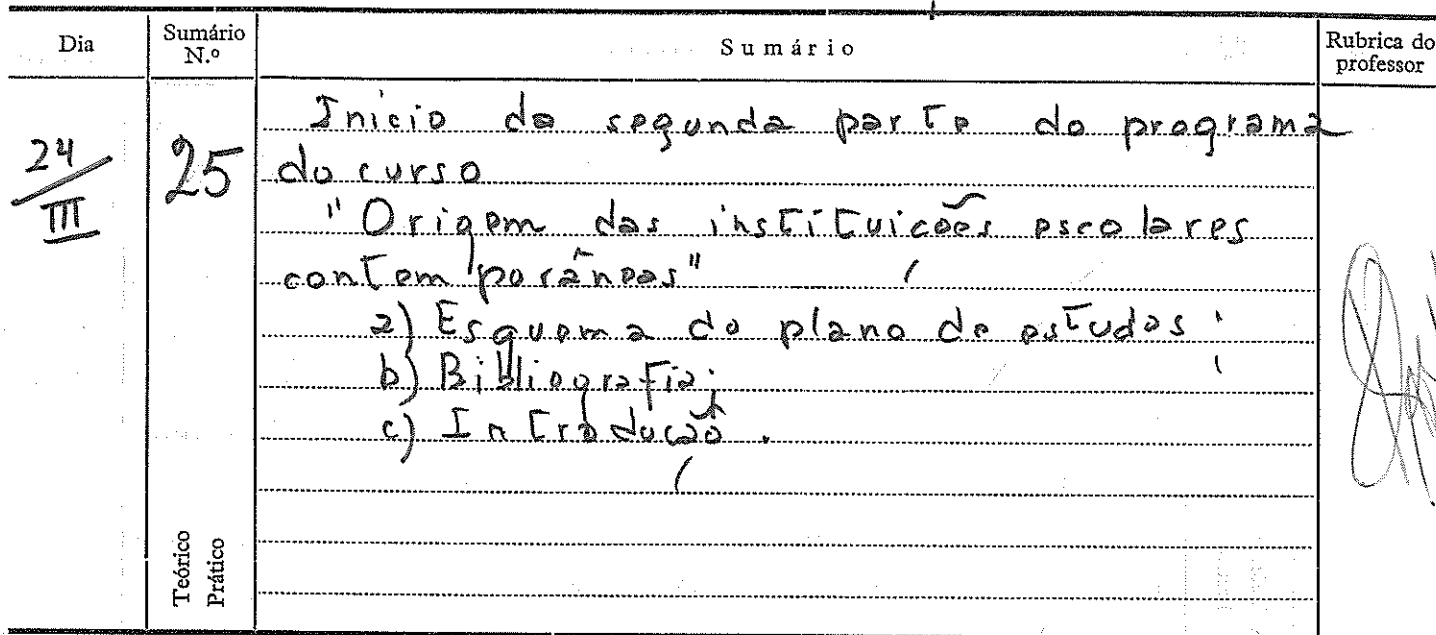 Dia
Sumário N.º
Sumário
Rubrica do professor
24/III
25
Início da segunda parte do programa
do curso
"Origem das instituições escolares
contemporâneas"
a) Esquema do plano de estudos;
b) Bibliografia;
c) Introdução.
Teórico
Prático